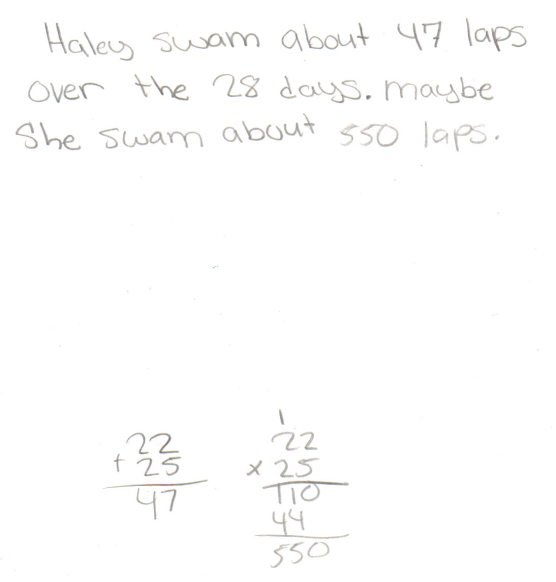 Haley swam about 47 laps
over the 28 days. maybe
She swam about 550 laps.
1
22
+ 25
47
22
x 25
110
44
550